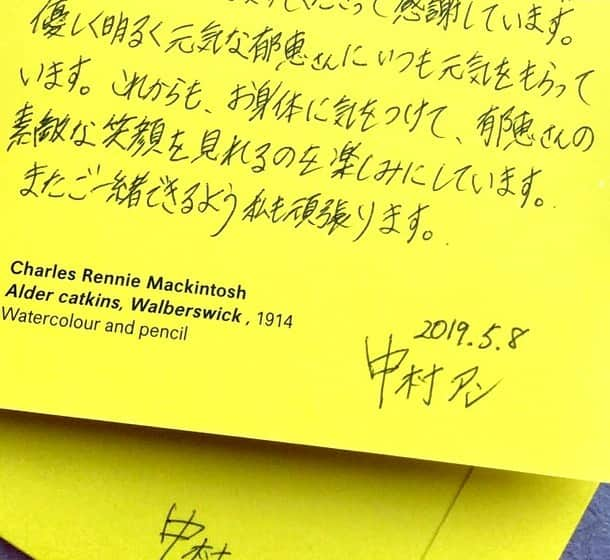 って感謝しています。
優しく明るく元気な郁恵さんにいつも元気をもらって
います。これからも、お身体に気をつけて、郁恵さんの
素敵な笑顔を見れるのを楽しみにしています。
またご一緒できるよう私も頑張ります。
Charles Rennie Mackintosh
Alder catkins, Walberswick, 1914
Watercolour and pencil
2019.5.8
中村アン
中村